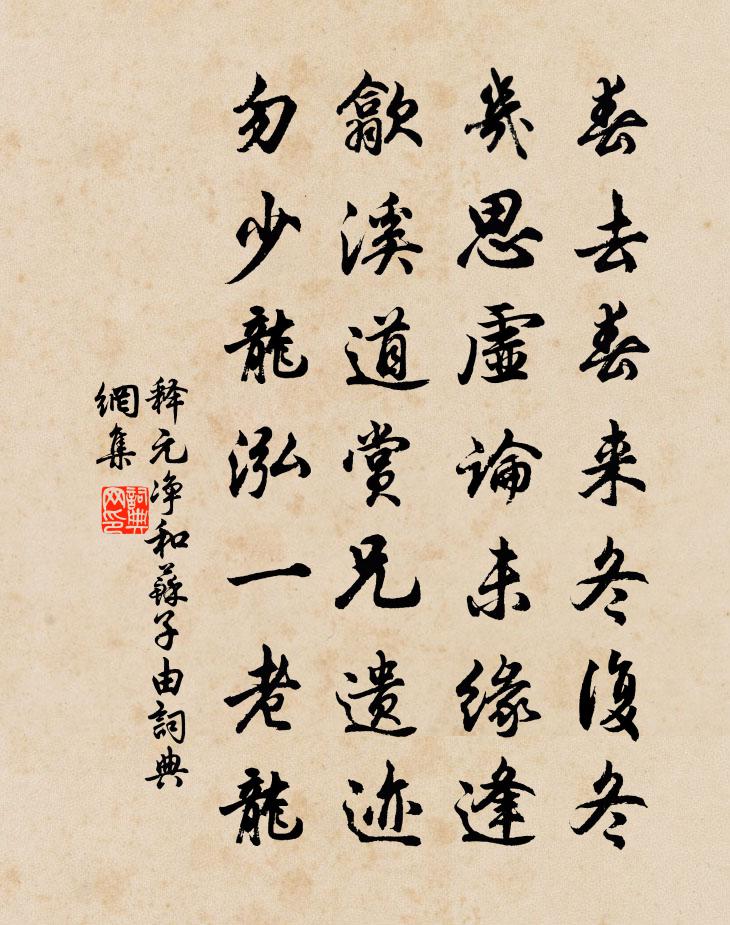 春去春来冬復冬
幾思虛論未緣逢
歙溪道賞兄遗迹
勿少龍泓一老龍
释元净和蘇子由詞典
網集
詞典網印